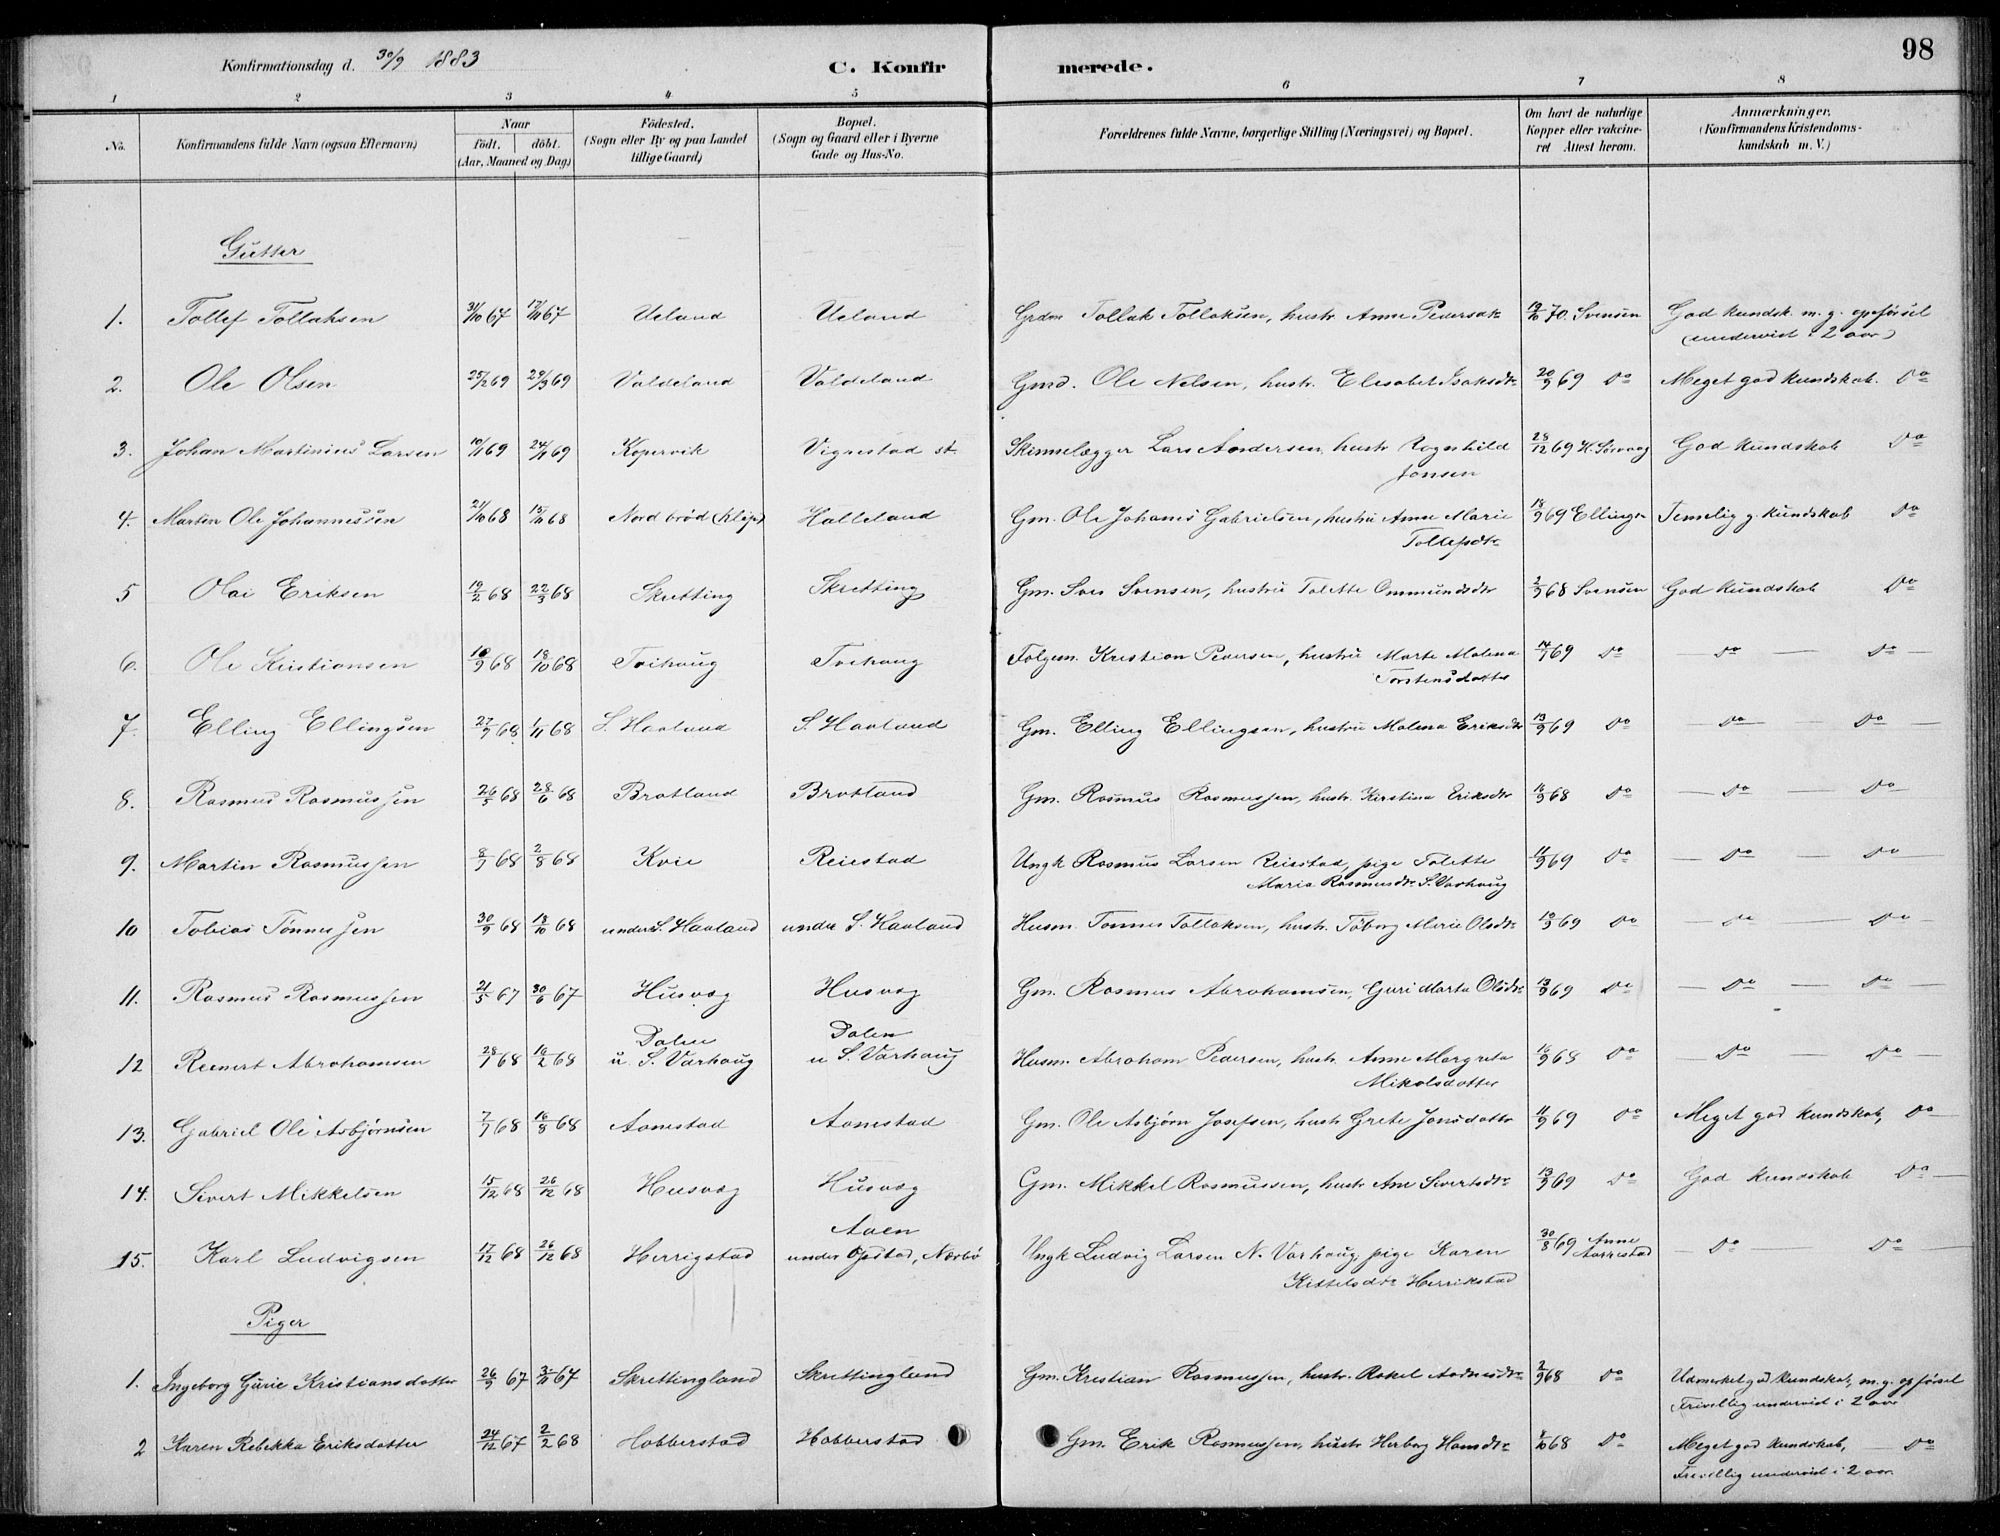 98
Konfirmationsdag d. 30/9 1883 C. Konfirmerede.
1 2 3 4 5 6 7 8
No. Konfirmandens fulde Navn (ogsaa Efternavn) Naar födt. döbt. (Aar, Maaned og Dag) Födested. (Sogn eller By og paa Landet tillige Gaard) Bopæl. (Sogn og Gaard eller i Byerne Gade og Hus-No. Forældrenes fulde Navne, borgerlige Stilling (Næringsvei) og Bopæl. Om havt de naturlige Kopper eller vakcineret Attest herom. Anmærkninger. (Konfirmandens Kristendomskundskab m. V.)
Gutter
1. Tollef Tollaksen 31/10 67 17/11 67 Ueland Ueland Grdm Tollak Tollaksen, hustr Anne Pedersdtr 19/10 70 Svensen God kundsk. m. g. opførsel
(undervist i 2 aar)
2. Ole Olsen 25/2 69 29/3 69 Valdeland Valdeland Gmd. Ole Nelsen, hustr. Elisabet Isaksdtr 20/9 69 Do Meget god kundskab. Do
3. Johan Martinius Larsen 10/1 69 24/1 69 Kopervik Vignestad st. Skinnelægger Lars Andersen, hustr Ragnhild 28/12 69 God kundskab Do
Jonsen
4. Martin Ole Johannessen 21/10 68 15/11 68 Nord brød (Klep) Halleland Gm. Ole Johanes Gabrielsen, hustru Anne Marie 18/9 69 Ellingsen Temelig g. kundskab Do
Tollefsdtr
5 Olai Eriksen 19/2 68 22/3 68 Skretting Skretting Gm. Sven Svensen, hustru Tolette Ommundsdtr 2/9 68 Svensen God kundskab Do
6. Ole Kristiansen 10/9 68 18/10 68 Tvihaug Tvihaug Folgem. Kristian Pedersen, hustru Marte Malena 14/9 69 Do — Do — Do —
Torstensdatter
7. Elling Ellingsen 27/9 68 1/11 68 S. Haaland S. Haaland Gm. Elling Ellingsen, hustru Malena Eriksdtr 13/9 69 Do — Do — Do —
8. Rasmus Rasmussen 26/5 68 28/6 68 Bratland Bratland Gm. Rasmus Rasmussen, hustr. Kirstina Eriksdtr 16/9 68 Do — Do — Do
9. Martin Rasmussen 8/7 68 2/8 68 Kvie Reiestad Ungk Rasmus Larsen Reiestad, pige Tolette 11/9 69 Do — Do — Do —
Maria Rasmusdtr S. Varhaug
10 Tobias Tønnessen 30/9 68 18/10 68 under S. Haaland under S. Haaland Husm. Tønnes Tollaksen, hustr. Tøborg Marie Olsdtr 10/9 69 Do — Do — Do —
11. Rasmus Rasmussen 21/5 67 30/6 67 Husvæg Husvæg Gm. Rasmus Abrahamsen, Guri Marta Olsdtr 13/9 69 Do — Do — Do —
Dalen Dalen
12 Reinert Abrahamsen 28/1 68 16/2 68 u. S. Varhaug u S. Varhaug Husm. Abraham Pedersen, hustr. Anne Margreta 16/9 68 Do — Do — Do —
Mikalsdatter
13. Gabriel Ole Asbjørnsen 7/7 68 16/8 68 Aanestad Aanestad Gm. Ole Asbjørn Josefsen, hustr Grete Jonsdatter 11/9 69 Do Meget god kundskab, Do
14. Sivert Mikkelsen 15/12 68 26/12 68 Husvæg Husvæg Gm. Mikkel Rasmussen, hustr Ane Sivertsdtr 13/9 69 Do God kundskab Do —
Aaen
15. Karl Ludvigsen 17/12 68 26/12 68 Herrigstad under Opstad, Nærbø Ungk Ludvig Larsen N. Varhaug, pige Karen 30/8 69 Anne Aarrestad — Do — Do —
Kittelsdtr Herrikstad
Piger
1. Ingeborg Gurie Kristiansdatter 26/9 67 3/11 67 Skrettingland Skrettingland Gm. Kristian Rasmussen, hustr. Rakel Aadnesdtr 2/9 68 Do Udmerket god kundskab, m. g. opførsel
Frivillig undervist i 2 aar
2 Karen Rebekka Eriksdatter 24/12 67 2/2 68 Hobberstad Hobberstad Gm. Erik Rasmussen, hustr Herborg Hansdtr 1/10 68 Do Meget god kundskab, Do
Frivillig undervist i 2 aar.